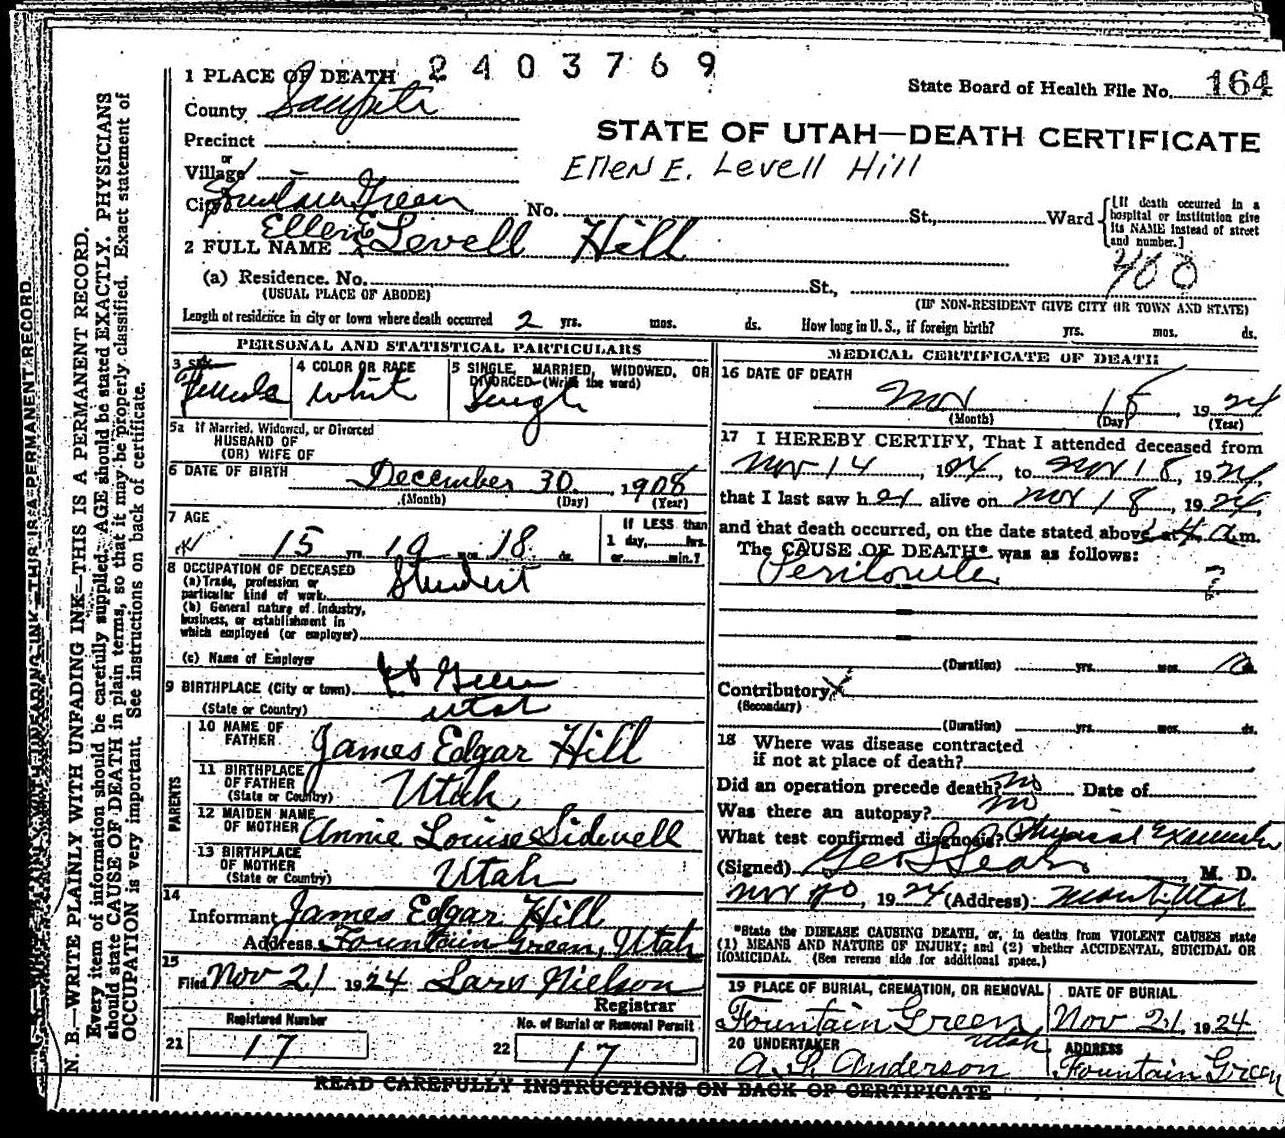 2403769
1 PLACE OF DEATH
State Board of Health File No. 164
County Sanpete
STATE OF UTAH—DEATH CERTIFICATE
Precinct
Ellen E. Levell Hill
or
Village
City Fountain Green No. St., Ward
[If death occurred in a hospital or institution give its NAME instead of street and number.]
Ellen E.
2 FULL NAME Levell Hill
400
(a) Residence. No. St.,
(USUAL PLACE OF ABODE) (IF NON-RESIDENT GIVE CITY OR TOWN AND STATE)
Length of residence in city or town where death occurred 2 yrs. mos. ds. How long in U. S., if foreign birth? yrs. mos. ds.
PERSONAL AND STATISTICAL PARTICULARS
3 SEX Female
4 COLOR OR RACE white
5 SINGLE, MARRIED, WIDOWED, OR DIVORCED (Write the word) Single
5a If Married, Widowed, or Divorced
HUSBAND OF
(OR) WIFE OF
6 DATE OF BIRTH December 30, 1908
(Month) (Day) (Year)
7 AGE 15 yrs. 10 mos. 18 ds.
If LESS than 1 day, hrs. or min.?
8 OCCUPATION OF DECEASED
(a) Trade, profession or particular kind of work Student
(b) General nature of industry, business, or establishment in which employed (or employer)
(c) Name of Employer
9 BIRTHPLACE (City or town) Ft Green
(State or Country) Utah
PARENTS
10 NAME OF FATHER James Edgar Hill
11 BIRTHPLACE OF FATHER (State or Country) Utah
12 MAIDEN NAME OF MOTHER Annie Louise Sidwell
13 BIRTHPLACE OF MOTHER (State or Country) Utah
14
Informant James Edgar Hill
Address Fountain Green, Utah
15
Filed Nov 21 1924 Lars Nielson
Registrar
Registered Number
21 17
No. of Burial or Removal Permit
22 17
MEDICAL CERTIFICATE OF DEATH
16 DATE OF DEATH
Nov 18, 1924
(Month) (Day) (Year)
17 I HEREBY CERTIFY, That I attended deceased from
Nov 14, 1924, to Nov 18, 1924,
that I last saw her alive on Nov 18, 1924,
and that death occurred, on the date stated above, at 4 a.m.
The CAUSE OF DEATH* was as follows:
Peritonitis ?
(Duration) yrs. mos. 10 ds.
Contributory
(Secondary)
(Duration) yrs. mos. ds.
18 Where was disease contracted
if not at place of death?
Did an operation precede death? no Date of
Was there an autopsy? no
What test confirmed diagnosis? Physical
(Signed) M. D.
Nov 20, 1924 (Address) Manti, Utah
*State the DISEASE CAUSING DEATH, or, in deaths from VIOLENT CAUSES state
(1) MEANS AND NATURE OF INJURY; and (2) whether ACCIDENTAL, SUICIDAL OR
HOMICIDAL. (See reverse side for additional space.)
19 PLACE OF BURIAL, CREMATION, OR REMOVAL
Fountain Green Utah
DATE OF BURIAL
Nov 21, 1924
20 UNDERTAKER
Anderson
ADDRESS
Fountain Green
READ CAREFULLY INSTRUCTIONS ON BACK OF CERTIFICATE
N. B.—WRITE PLAINLY WITH UNFADING INK—THIS IS A PERMANENT RECORD.
Every item of information should be carefully supplied. AGE should be stated EXACTLY. PHYSICIANS
should state CAUSE OF DEATH in plain terms, so that it may be properly classified. Exact statement of
OCCUPATION is very important. See instructions on back of certificate.